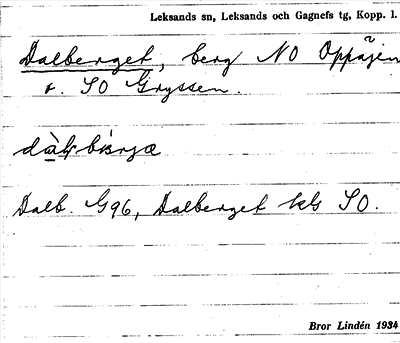 Leksands sn, Leksands och Gagnefs tg, Kopp. l.
Dalberget, berg NO Oppåjen
o. SO Gryssen.
Dalb. G96, Dalberget kls SO.
Bror Lindén 1934